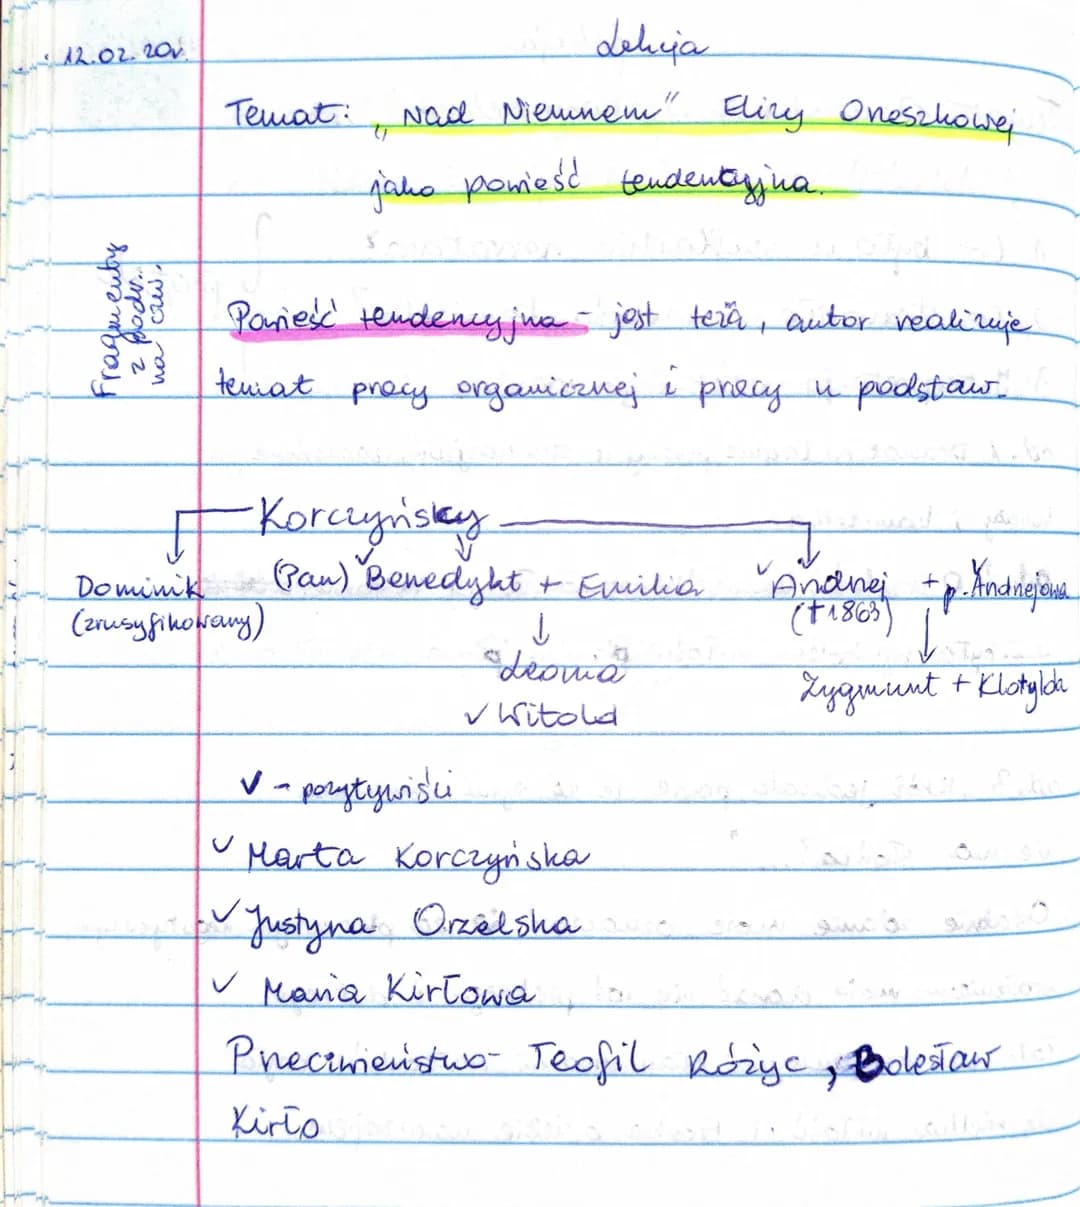 12.02.20r.
Lekcja
Temat: „Nad Niemnem" Elizy Orzeszkowej
jako powieść tendencyjna.
Fragmenty
z podr.
na czw.
Powieść tendencyjna - jest teza, autor realizuje
temat pracy organicznej i pracy u podstaw.
Korczyńscy
Dominik (Pan) Benedykt + Emilia ✓Andrzej + p. Andrzejowa
(zrusyfikowany) (†1863)
Leonia
✓ Witold
Zygmunt + Klotylda
✓ - pozytywiści
✓ Marta Korczyńska
✓ Justyna Orzelska
✓ Maria Kirłowa
Przeciwieństwo - Teofil Różyc, Bolesław
Kirło